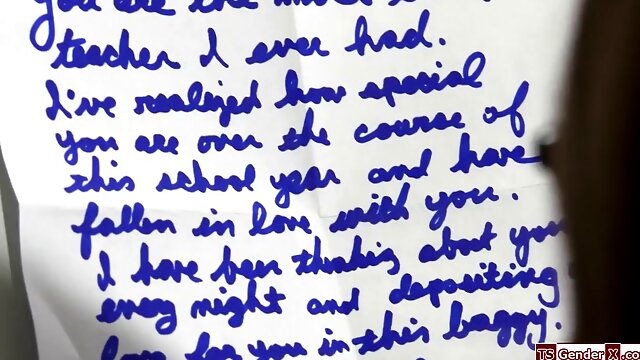 you are the most
teacher I ever had.
I've realized how special
you are over the course of
this school year and have
fallen in love with you.
I have been thinking about you
every night and depositing
love for you in this baggy.
TS Gender X.co